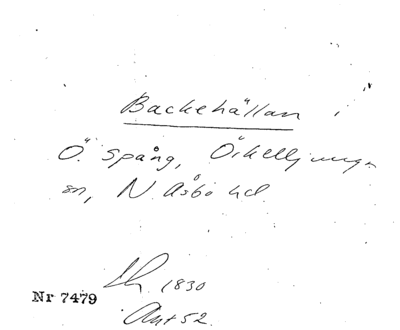 Backehällan
Ö. Spång, Örkelljunga
sn, N Åsbo hd
1830
Nr 7479
Ant 52.